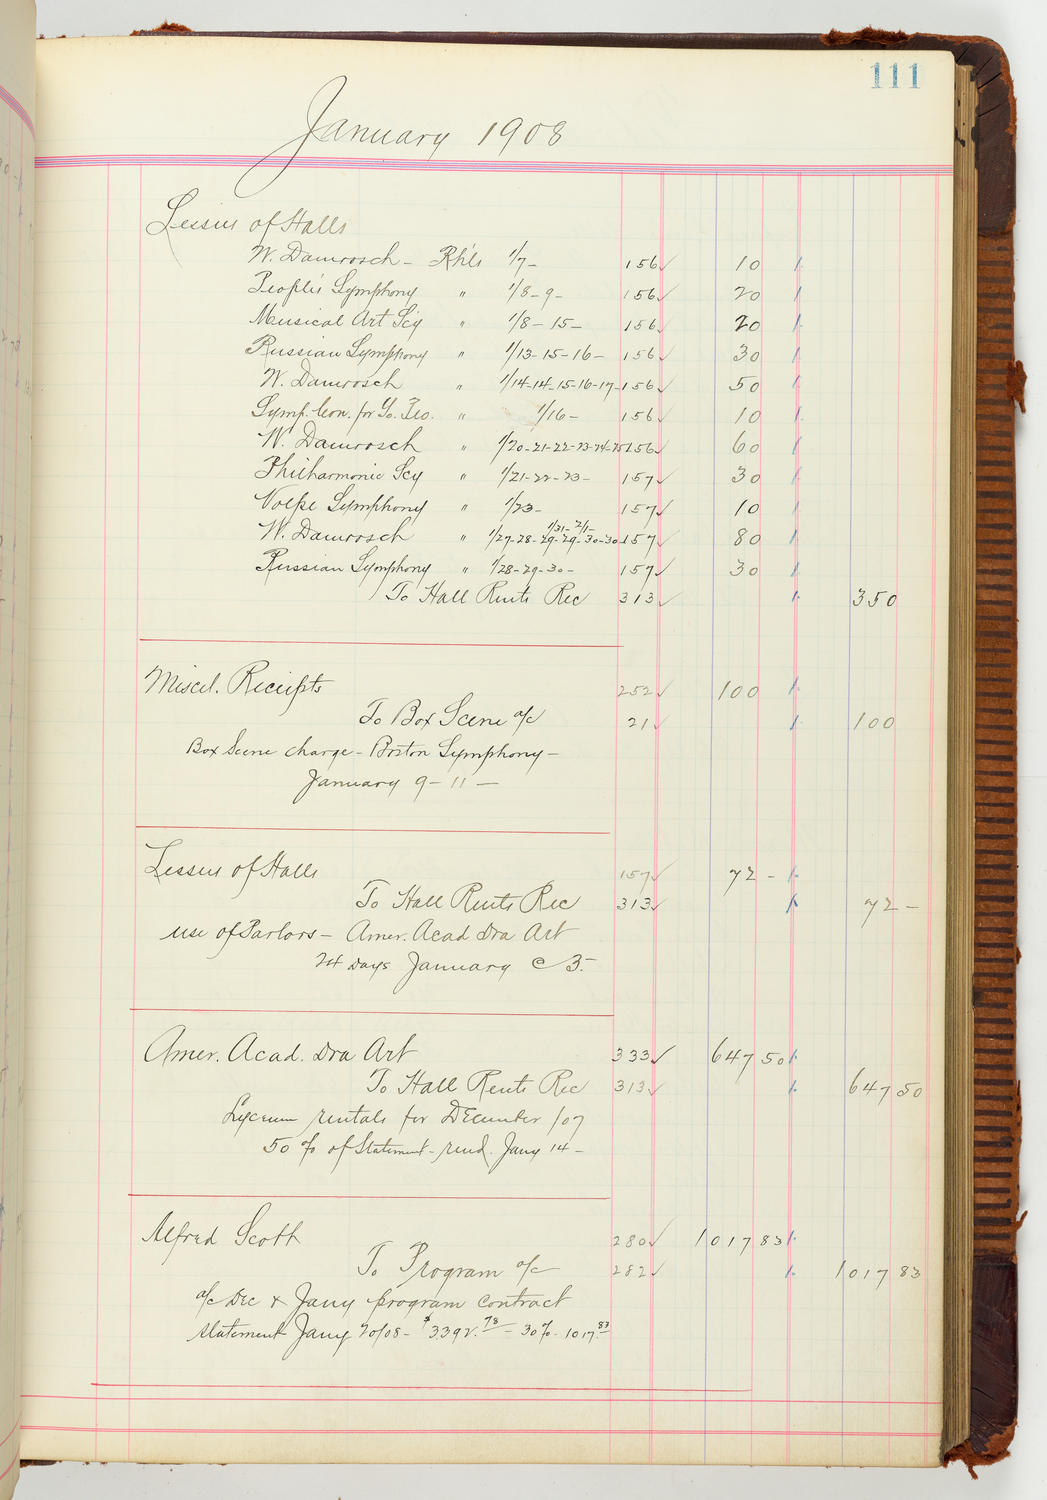 111
January 1908
Lessees of Halls
W. Damrosch - Rhls 1/7 - 156 ✓ 10
People's Symphony " 1/8 - 9 - 156 ✓ 20
Musical Art Scy " 1/8 - 15 - 156 ✓ 20
Russian Symphony " 1/13 - 15 - 16 - 156 ✓ 30
W. Damrosch " 1/14-14-15-16-17- 156 ✓ 50
Symp. Con. for Yo. Peo. " 1/16 - 156 ✓ 10
W. Damrosch " 1/20-21-22-23-24-25 156 ✓ 60
Philharmonic Scy " 1/21-22-23- 157 ✓ 30
Volpe Symphony " 1/23- 157 ✓ 10
1/31- 2/1-
W. Damrosch " 1/27-28-29-29-30-30 157 ✓ 80
Russian Symphony " 1/28-29-30- 157 ✓ 30
To Hall Rents Rec 313 ✓ 350
Miscel. Receipts 252 ✓ 100
To Box Scene a/c 21 ✓ 100
Box Scene charge - Boston Symphony -
January 9 - 11 -
Lessees of Halls 157 ✓ 72 -
To Hall Rents Rec 313 ✓ 72 -
use of Parlors - Amer. Acad Dra Art
24 Days January @ 3.-
Amer. Acad. Dra Art 333 ✓ 647 50
To Hall Rents Rec 313 ✓ 647 50
Lyceum rentals for December /07
50 % of Statement - rend. Jany 14 -
Alfred Scott 280 ✓ 1017 83
To Program a/c 282 ✓ 1017 83
a/c Dec & Jany program contract
Statement Jany 20/08 - $3392.78 - 30% - 1017.83